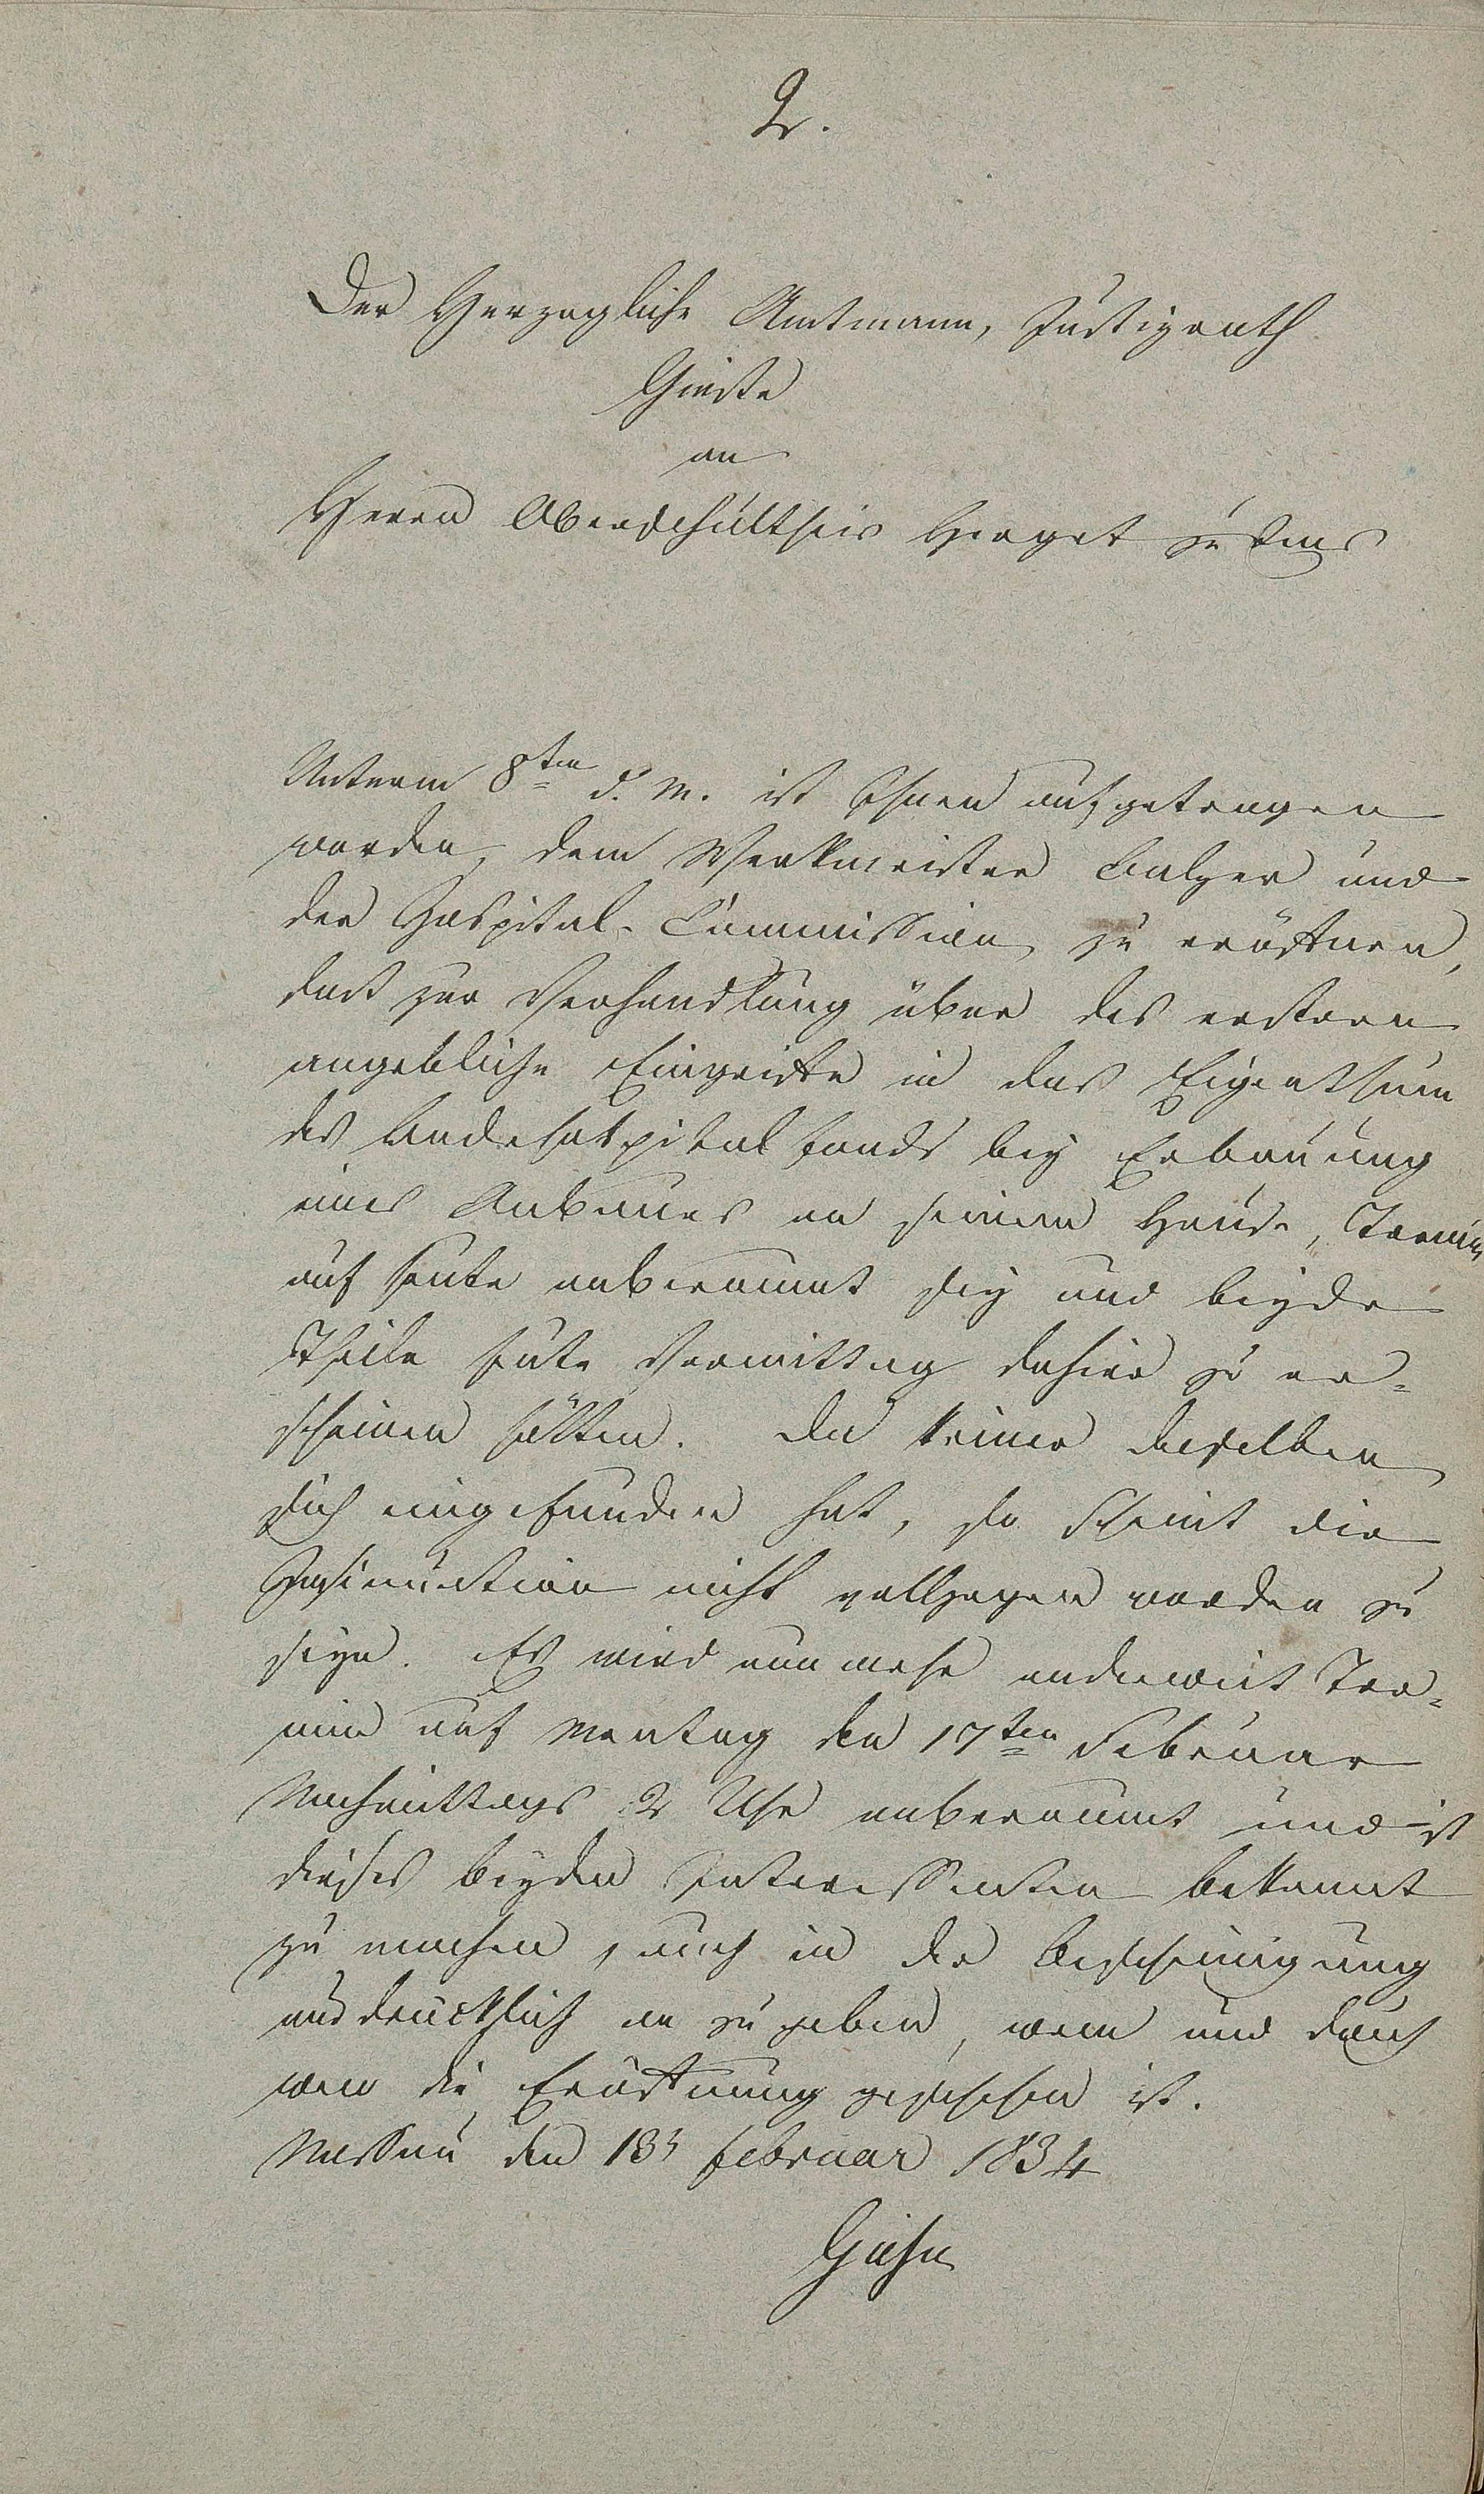 2.
Der Herzogliche Amtmann, Justizrath
Giesse
an
Herrn Oberschultheis Herget zu Ems
Unterm 8ten d. M. ist Ihnen aufgetragen
worden, dem Werkmeister Balzer und
der Hospital-Commission zu eröffnen,
daß zur Verhandlung über des erstern
angebliche Eingriffe in das Eigenthum
des Badehospitalfonds bey Erbauung
eines Anbaues an seinem Hause, Termin
auf heute anberaumt sey und beyde
Theile heute Vormittag dahier zu er-
scheinen hätten. Da keiner derselben
sich eingefunden hat, so scheint die
Insinuation nicht vollzogen worden zu
seyn. Es wird nunmehr anderweit Ter-
min auf Montag den 17ten Februar
Nachmittags 2 Uhr anberaumt und ist
dieses beyden Interessenten bekannt
zu machen, auch in der Bescheinigung
ausdrücklich an zu geben, wann und durch
wen die Eröffnung geschehen ist.
Nassau den 13t Februar 1834